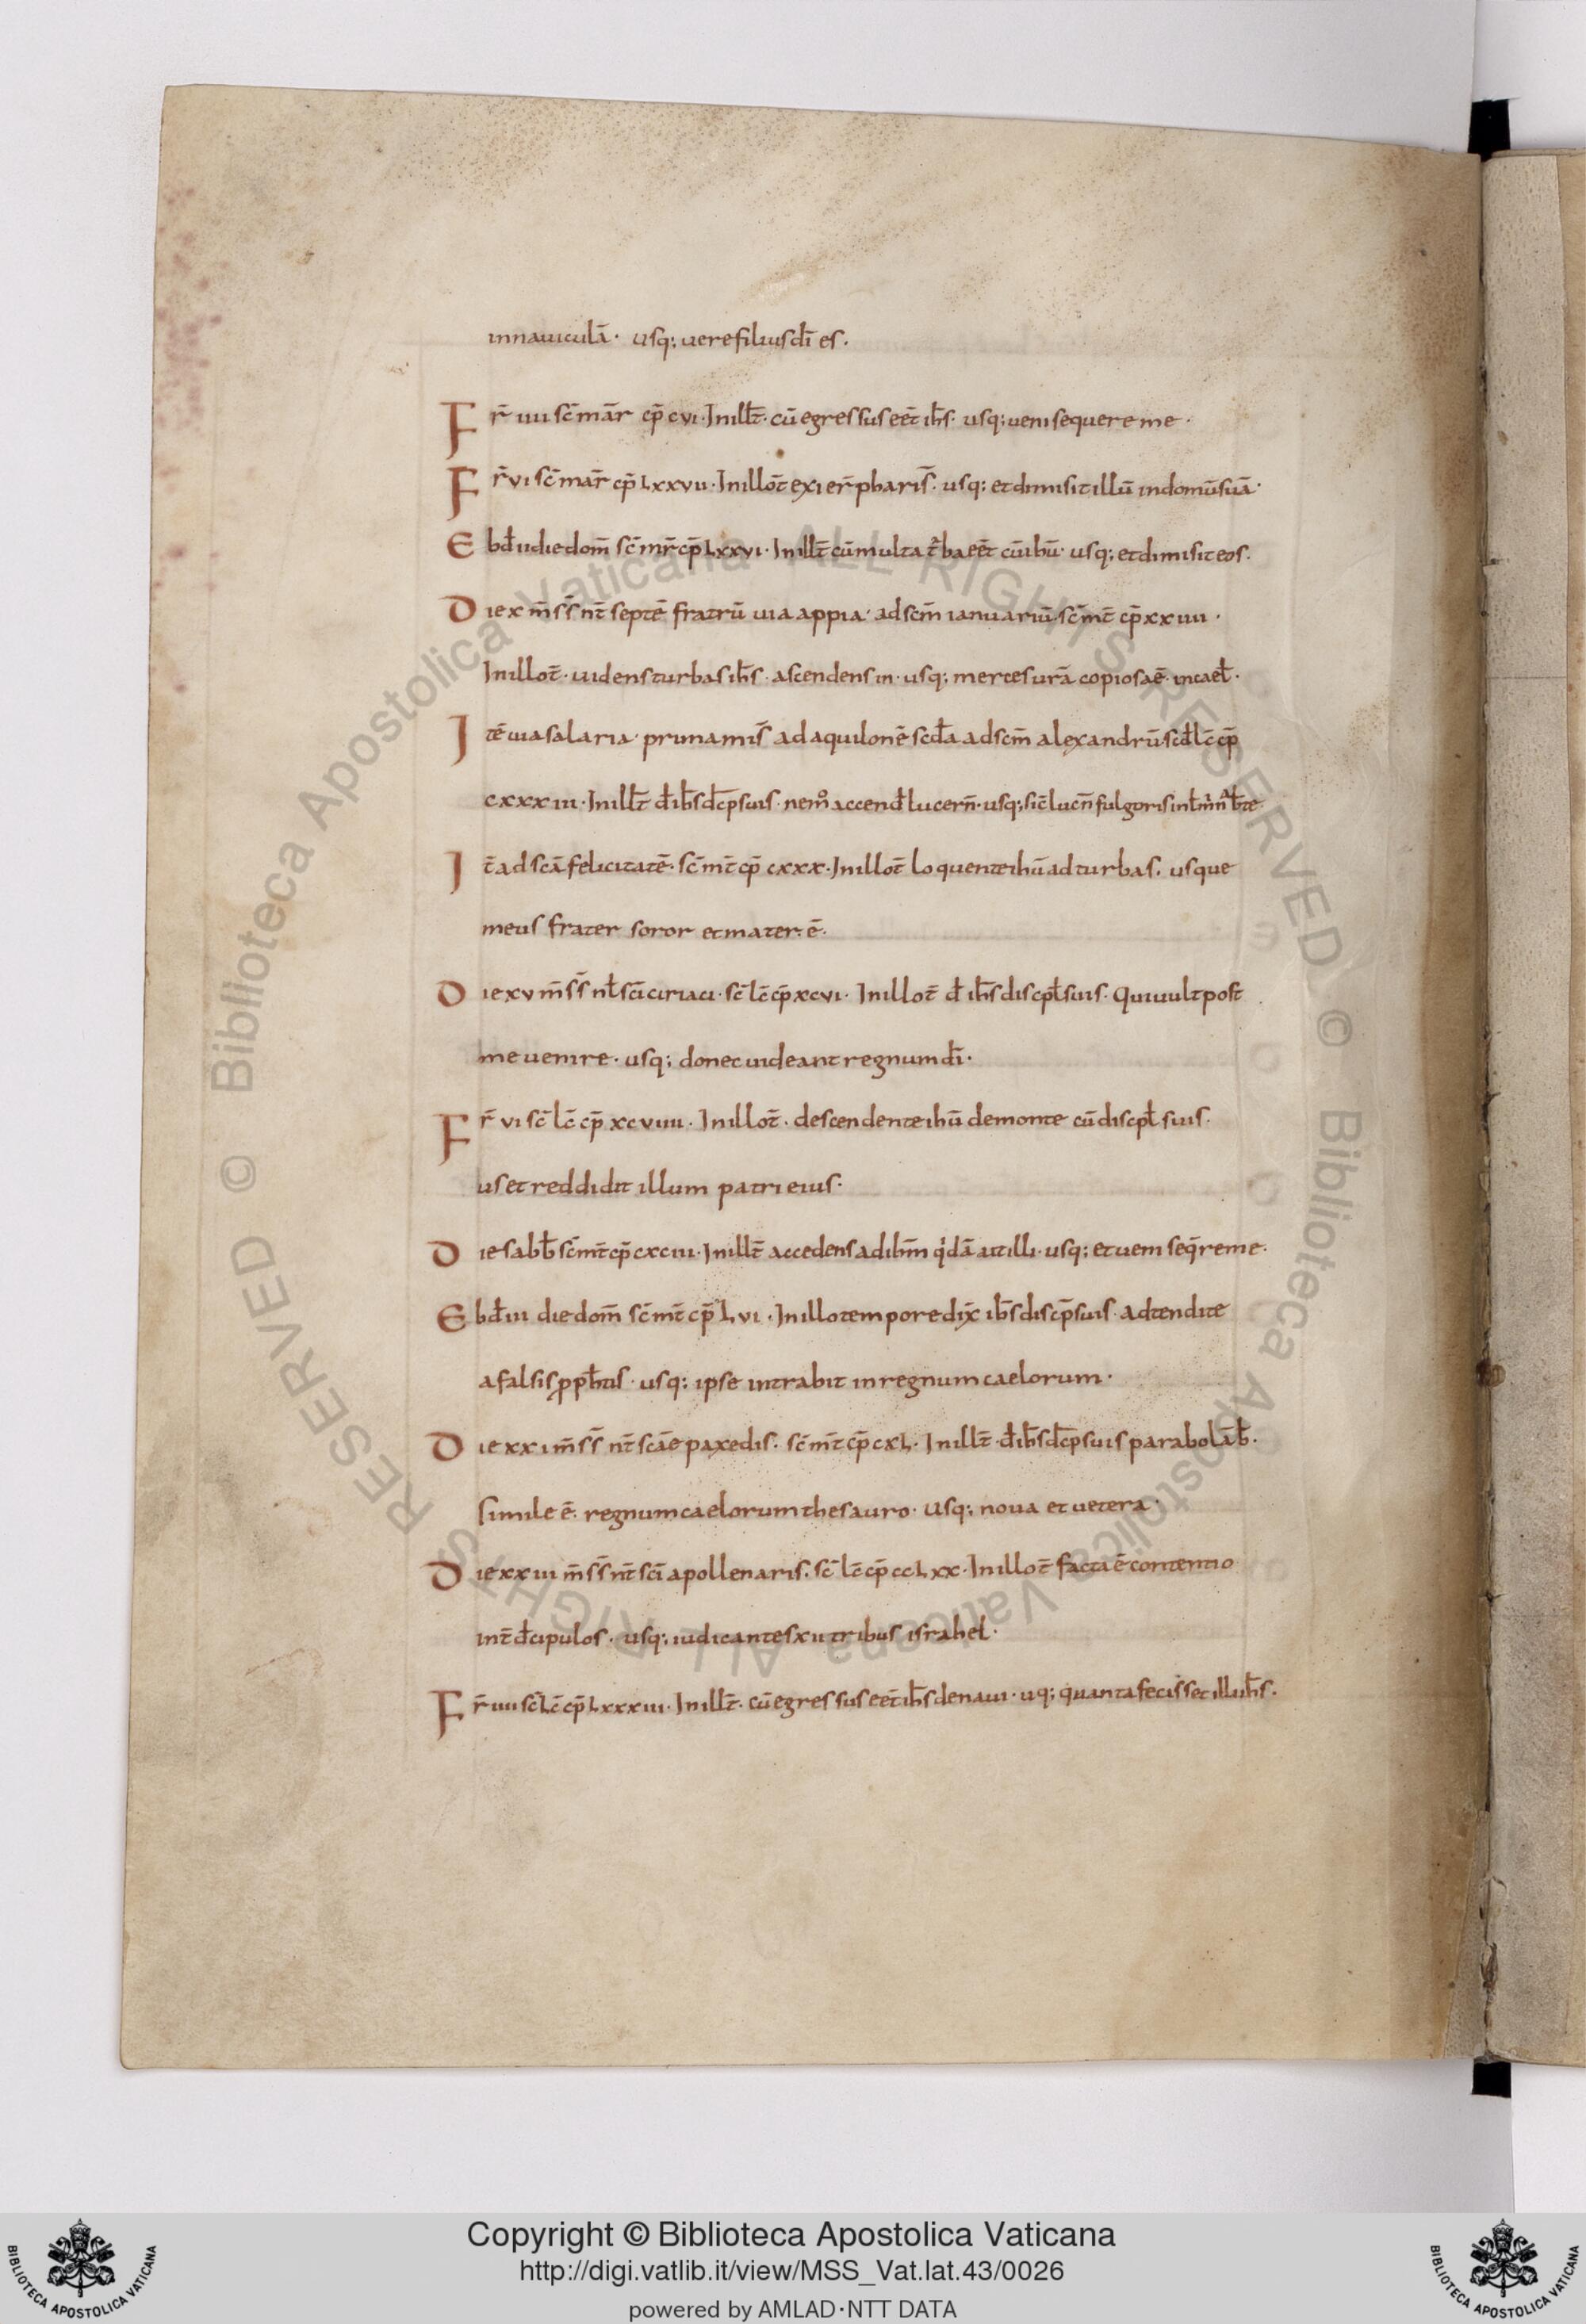 innauiculā· usq; uerefiliusdī es·
Fr̄ iiii sc̄ mār cp̄ cvi· Inillt̄· cū egressus eēt ih̄s· usq; ueni sequere me·
Fr̄ vi sc̄ mar̄ cp̄ Lxxvii· Inillot̄ exier̄ pharis̄· usq; et dimisit illū indomū suā·
Ebd̄ ii die dom̄ sc̄ mr̄ cp̄ Lxxvi· Inillt̄ cū multa baeēt usq; et dimisit eos·
Die x m̄ ss̄ nt̄ septē fratrū uia appia· ad scm̄ ianuariū· sc̄ mt̄ cp̄ xxiiii·
Inillot̄· uidens turbas ih̄s· ascendens in· usq; merces urā copiosa ē· incael̄·
Itē uia salaria· ad aquilonē ad scm̄ alexandrū· sc̄d lc̄ cp̄
cxxxiii· Inillt̄ d̄ ih̄s suis· nem̊ accend̄ lucern̄· usq; sic̄ lucn̄ fulgoris
It̄ ad scā felicitatē· sc̄ mt̄ cp̄ cxxx· Inillot̄ loquente ihū ad turbas· usque
meus frater soror et mater· ē·
Die xv m̄ ss̄ nt̄ scī ciriaci· sc̄ lc̄ cp̄ xcvi· Inillot̄ d̄ ih̄s discipl̄ suis· Qui uult post
me uenire· usq; donec uideant regnum dī·
Fr̄ vi sc̄ lc̄ cp̄ xcviiii· Inillot̄· descendente ihū de monte cū discipl̄ suis·
us et reddidit illum patri eius·
Die sabb̄ sc̄ mt̄ cp̄ cxciii· Inillt̄ accedens ad ihm̄ qͥdā ait illi· usq; et ueni seq̄re me·
Ebd̄ iii die dom̄ sc̄ mt̄ cp̄ Lvi· Inillo tempore dix̄ ih̄s discp̄ suis· adtendite
a falsis pph̄tis· usq; ipse intrabit in regnum caelorum·
Die xxi m̄ ss̄ nt̄ scāe paxedis· sc̄ mt̄ cp̄ cxL· Inillt̄· d̄ ih̄s dc̄p suis parabolā h̄·
simile ē· regnum caelorum thesauro· usq; noua et uetera·
Die xxiii m̄ ss̄ nt̄ scī apollenaris· sc̄ lc̄ cp̄ ccLxx· Inillot̄ facta ē contentio
int̄ d̄cipulos· usq; iudicantes xii tribus israhel·
Fr̄ iiii sc̄ Lc̄ cp̄ Lxxxiii· Inillt̄· cū egressus eēt ih̄s de naui· uq; quanta fecisset illi ih̄s·
Copyright © Biblioteca Apostolica Vaticana
http://digi.vatlib.it/view/MSS_Vat.lat.43/0026
powered by AMLAD·NTT DATA
BIBLIOTECA APOSTOLICA VATICANA
BIBLIOTECA APOSTOLICA VATICANA
© Biblioteca Apostolica Vaticana ALL RIGHTS RESERVED © Biblioteca Apostolica Vaticana ALL RIGHTS RESERVED